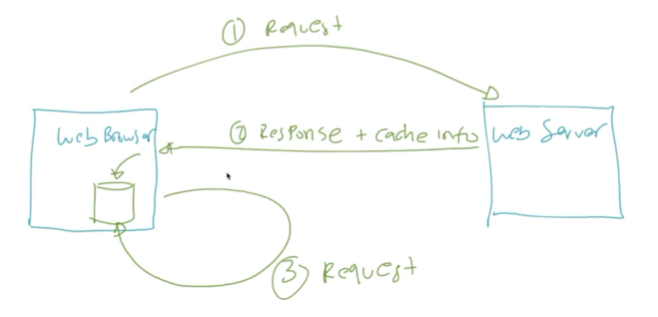 ① Request
Web Browser
② Response + cache info
Web Server
③ Request